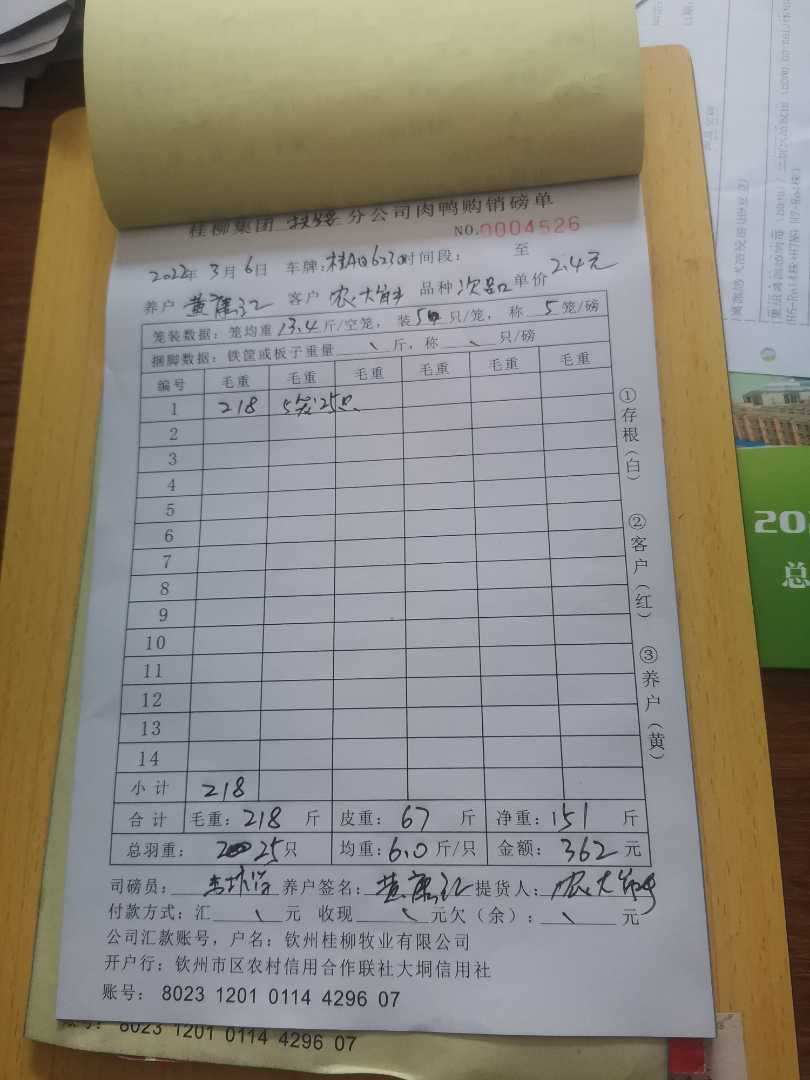 桂柳集团 扶绥 分公司肉鸭购销磅单
NO.0004526
2022年 3月 6日 车牌: 桂AQ6230 时间段: 至
养户 黄 客户 农大 品种 次品 单价 2.4元
笼装数据: 笼均重 13.4 斤/空笼, 装 5 只/笼, 称 5 笼/磅
捆脚数据: 铁筐或板子重量 \ 斤, 称 \ 只/磅
编号 毛重 毛重 毛重 毛重 毛重 毛重
1 218 5笼25只
2
3
4
5
6
7
8
9
10
11
12
13
14
小计 218
合计 毛重: 218 斤 皮重: 67 斤 净重: 151 斤
总羽重: 25只 均重: 6.0 斤/只 金额: 362 元
司磅员: 养户签名: 黄 提货人: 农大
付款方式: 汇 \ 元 收现 \ 元欠(余): \ 元
公司汇款账号, 户名: 钦州桂柳牧业有限公司
开户行: 钦州市区农村信用合作联社大垌信用社
账号: 8023 1201 0114 4296 07
①存根(白) ②客户(红) ③养户(黄)
账号: 8023 1201 0114 4296 07
202
总